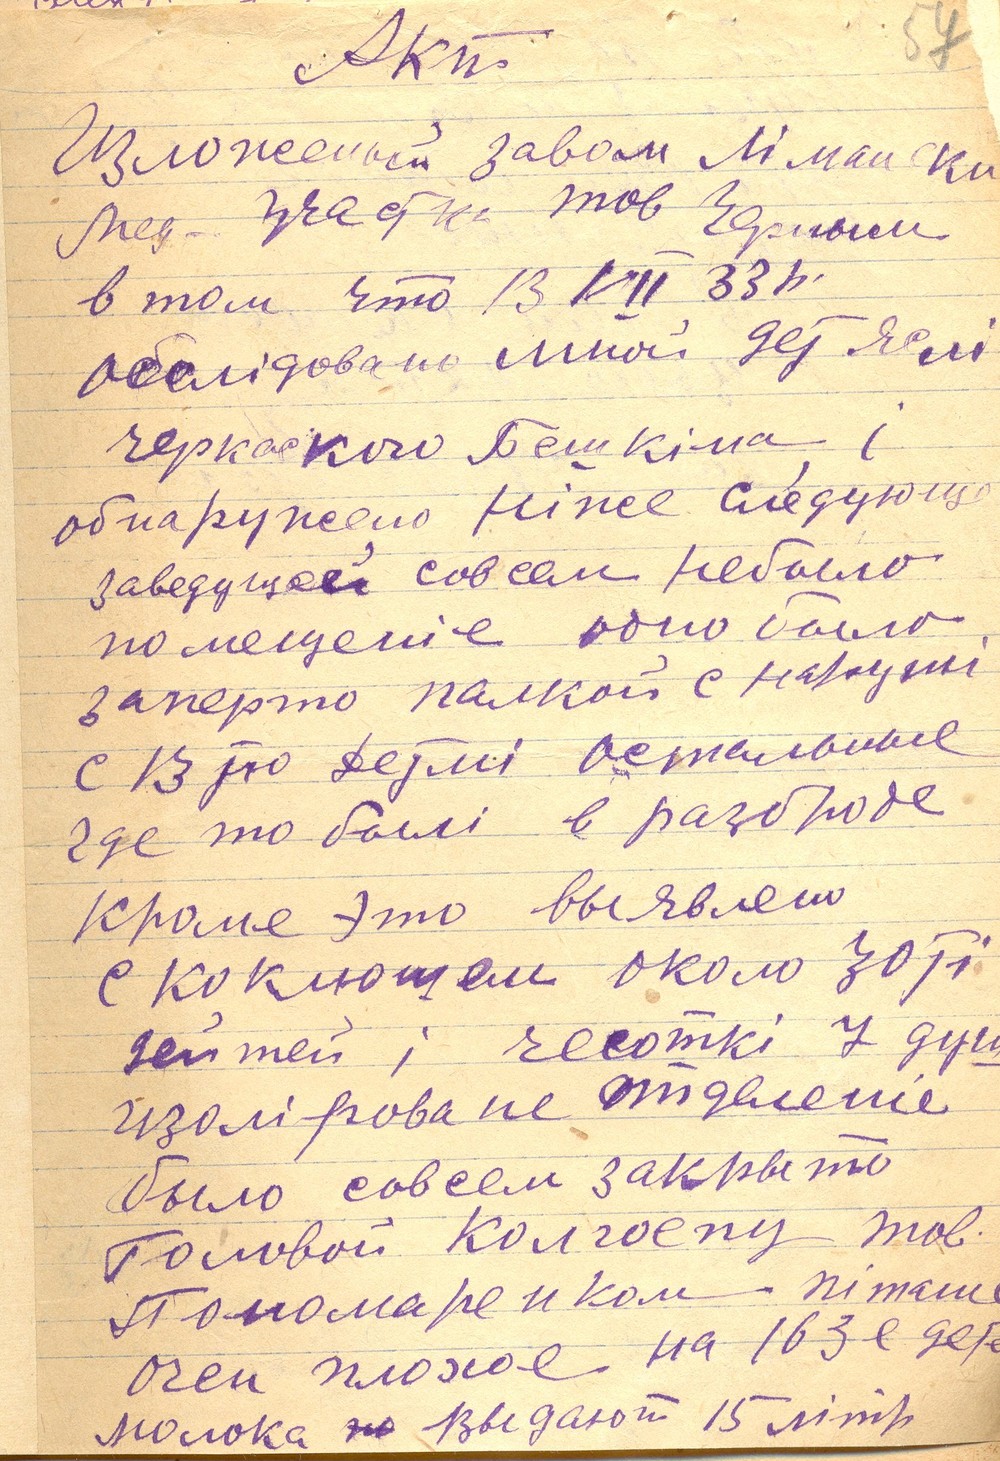 57
Акт
Изложеный завом Лімански
Мед участка тов Черным
в том что 13 VII 33 г.
обслідовано мной дет яслі
Черкаского Бешкіма і
обнаружено ніже следующо
заведущей совсем небыло
помещеніе одно было
заперто палкой с наружі
с 13 ю детмі остальные
где то былі в разброде
кроме это выявлено
с коклющем около 30ті
дейтей і чесоткі 7 душ
изоліроване отделеніе
было совсем закрыто
Головой Колгоспу тов.
Пономаренком піташе
очен плохое на 163 е дете
молока выдают 15 літр